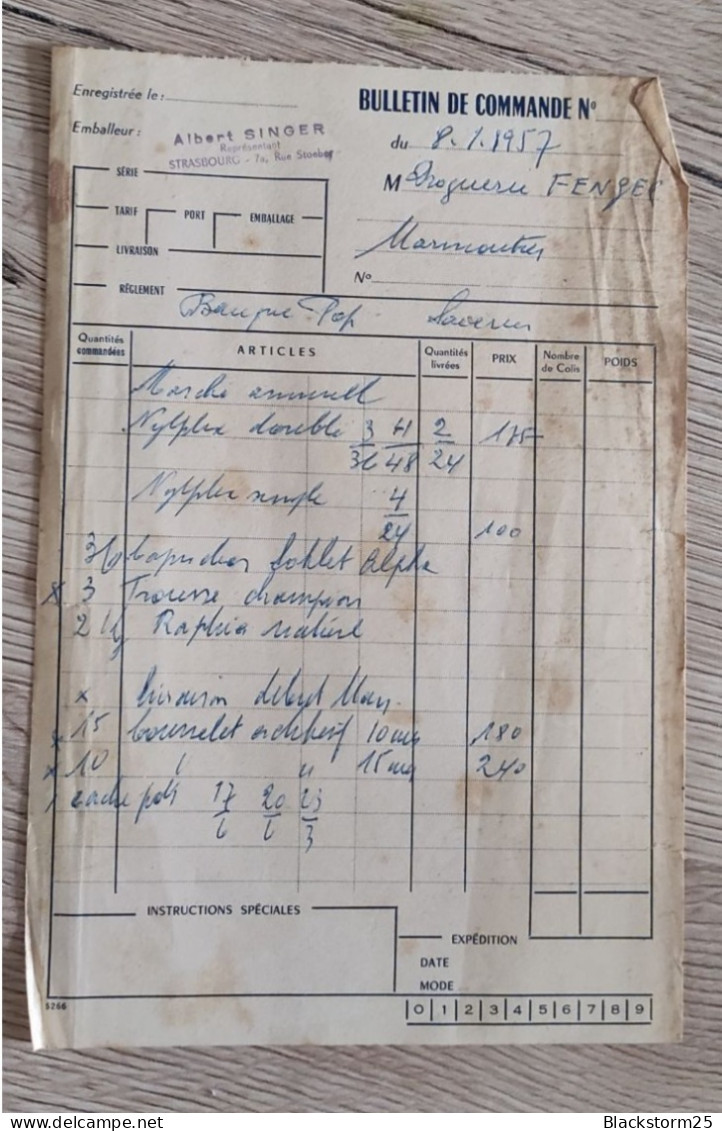 Enregistrée le :
BULLETIN DE COMMANDE N°
Emballeur :
Albert SINGER
Représentant
STRASBOURG - 7a, Rue
du 8.1.1957
SÉRIE
M Droguerie FENGER
TARIF PORT EMBALLAGE
Marmoutier
LIVRAISON
N°
RÈGLEMENT
Banque Pop Saverne
Quantités commandées ARTICLES Quantités livrées PRIX Nombre de Colis POIDS
Marché annuel
Nylplex double 3/36 4/48 2/24 175
Nylplex simple 4/24 100
36 Alpha
x 3 Trousse champion
2 Raphia
x Livraison début Mars
x 15 bourrelet adhésif 10 m 180
x 10 " 15 m 240
x cache pots 17/6 20/6 23/3
INSTRUCTIONS SPÉCIALES
EXPÉDITION
DATE
MODE
5266
0 1 2 3 4 5 6 7 8 9
Blackstorm25